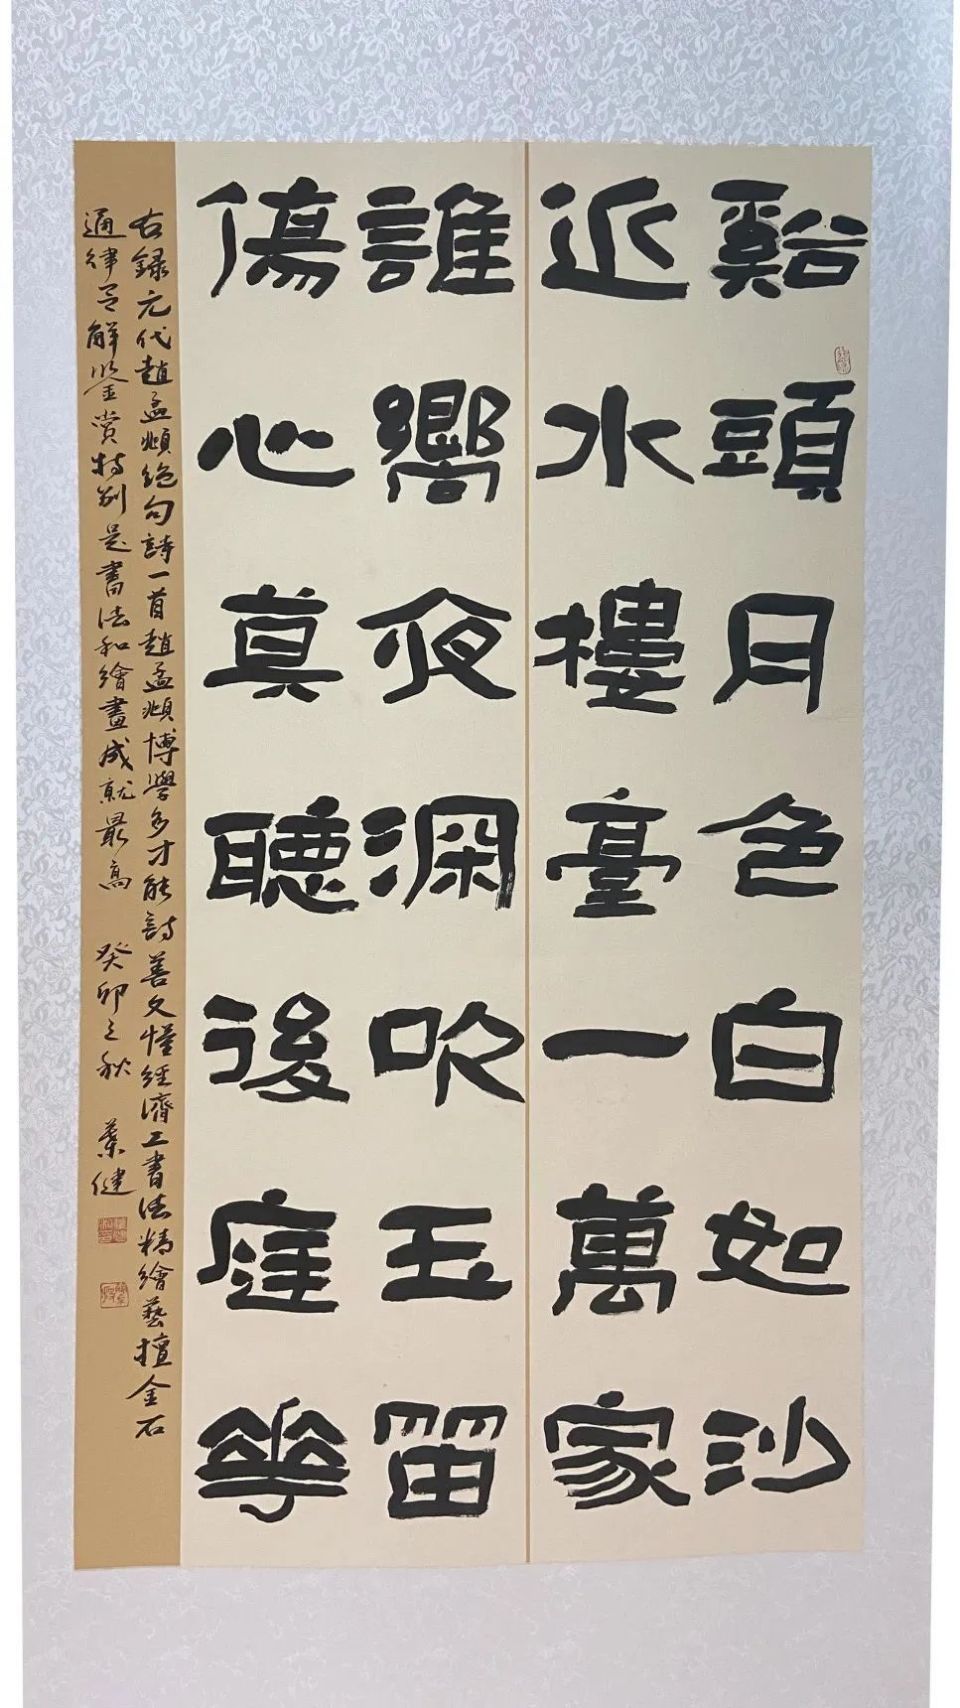 谿頭月色白如沙
近水樓臺一萬家
誰嚮夜深吹玉留
傷心真聽後庭花
右録元代趙孟頫绝句詩一首趙孟頫博學多才能詩善文懂經濟工書法精繪藝擅金石
通律吕解鉴赏特别是書法和繪畫成就最高 癸卯之秋 葉健